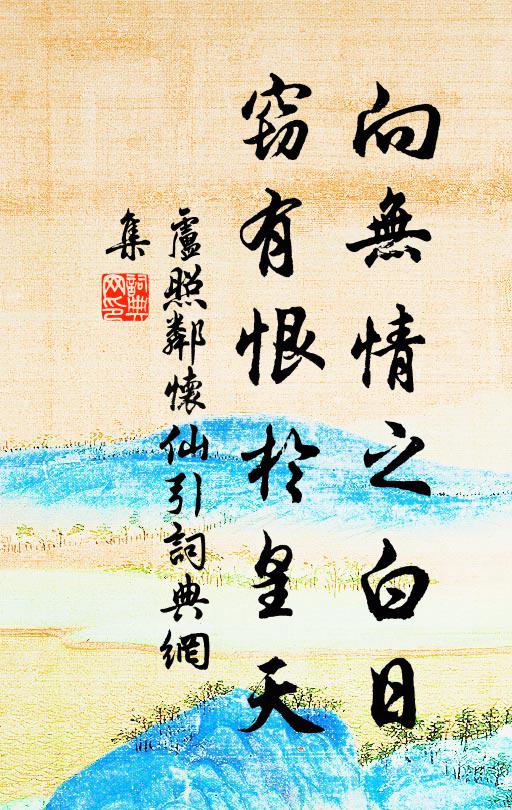 向無情之白日
竊有恨於皇天
盧照鄰懷仙引詞典網
集
詞典
网印